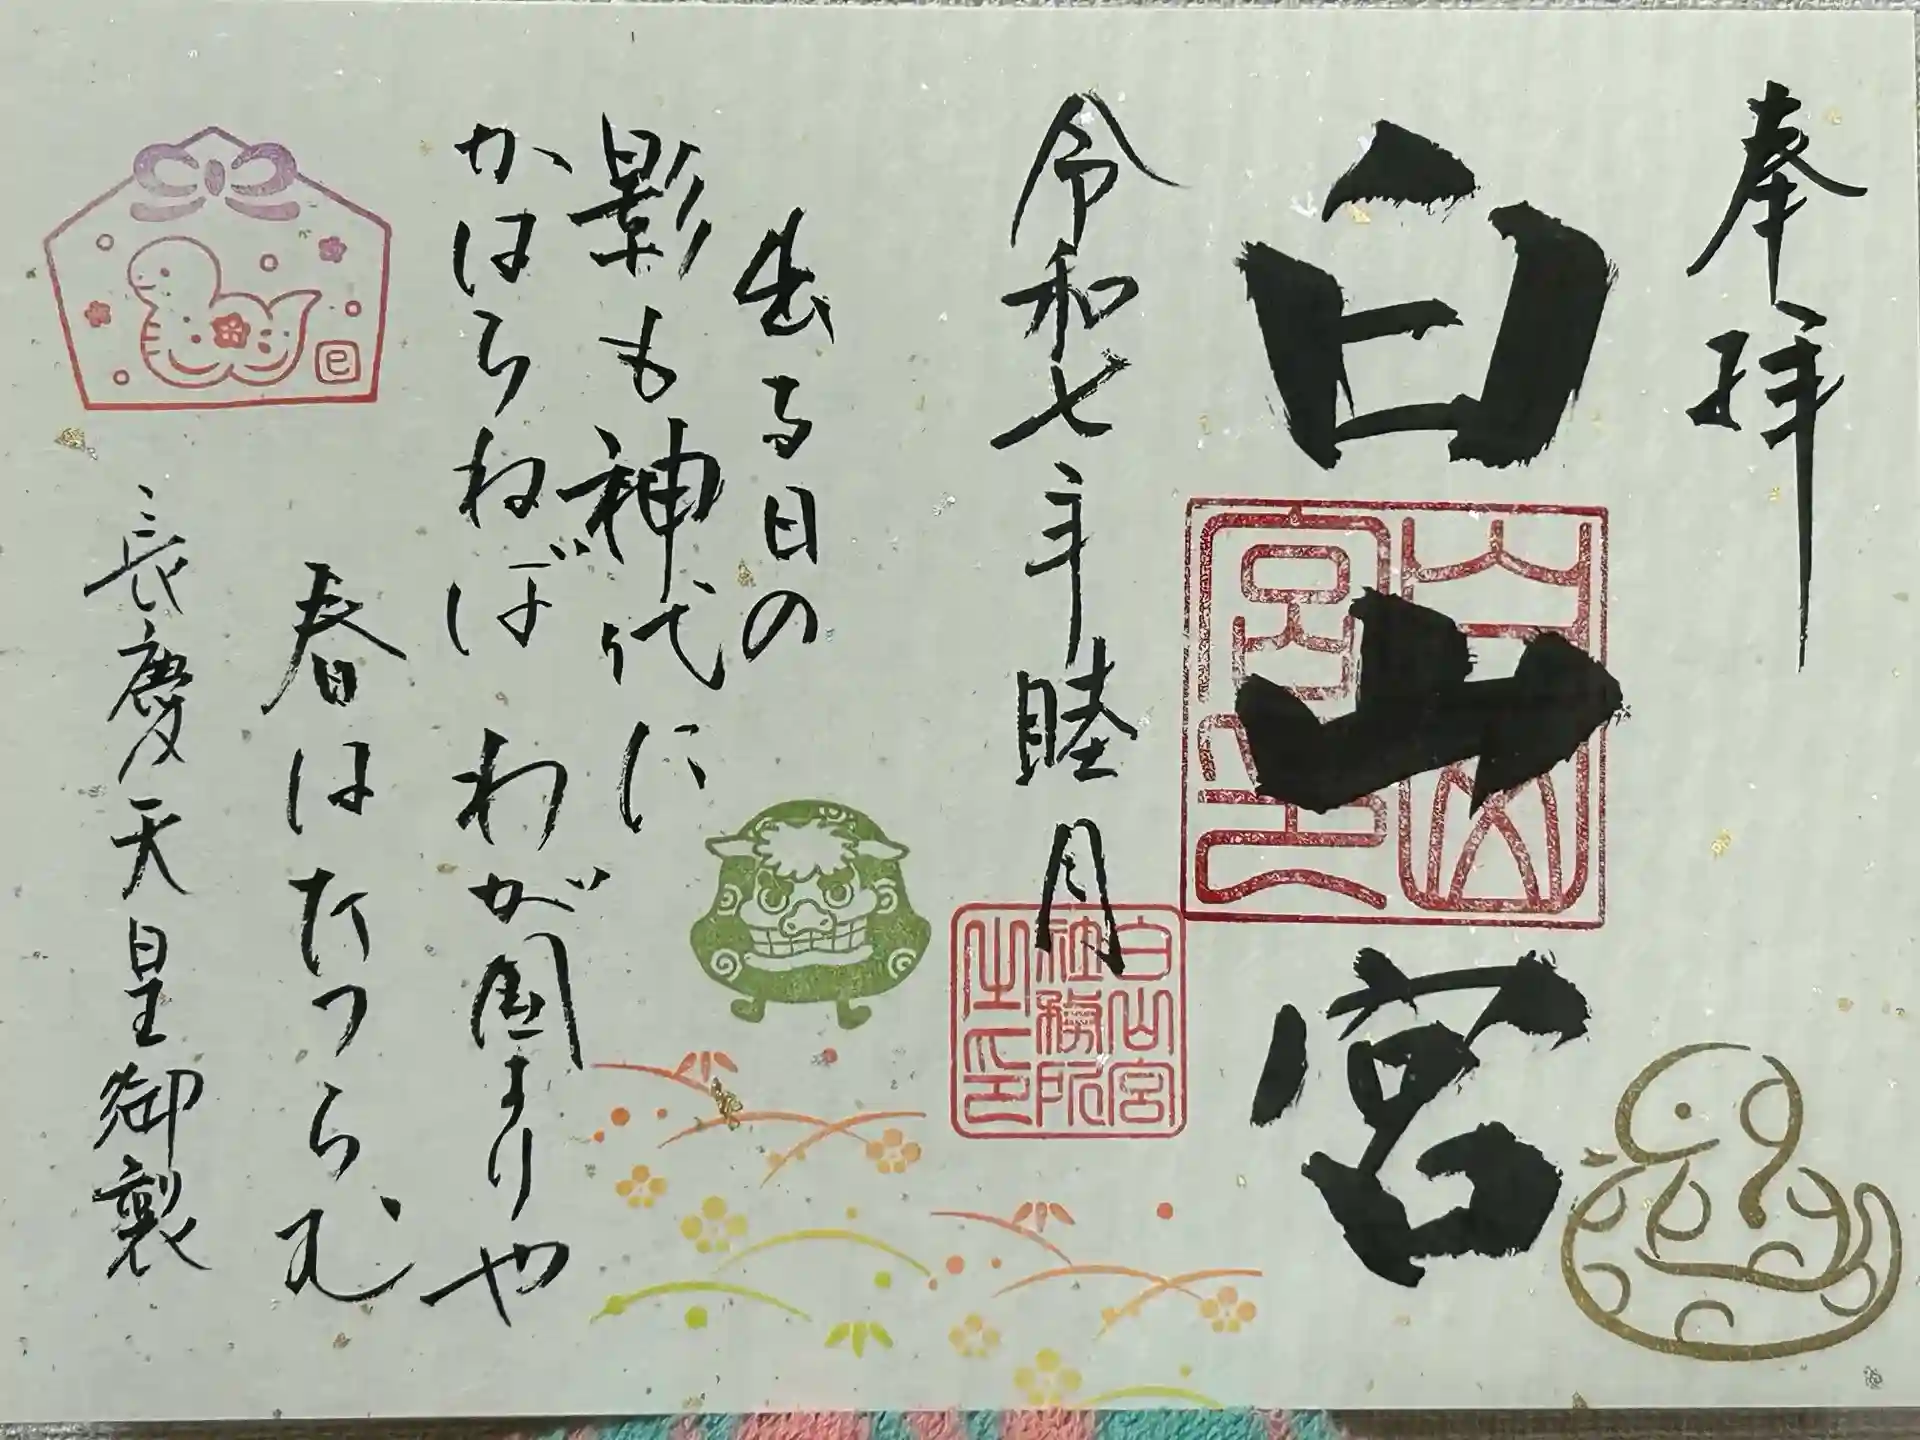 奉拝
白山宮
令和七年睦月
白山宮
社務所
之印
出る日の
影も神代に
かはらねば わが国よりや
春はたつらむ
長慶天皇御製
巳